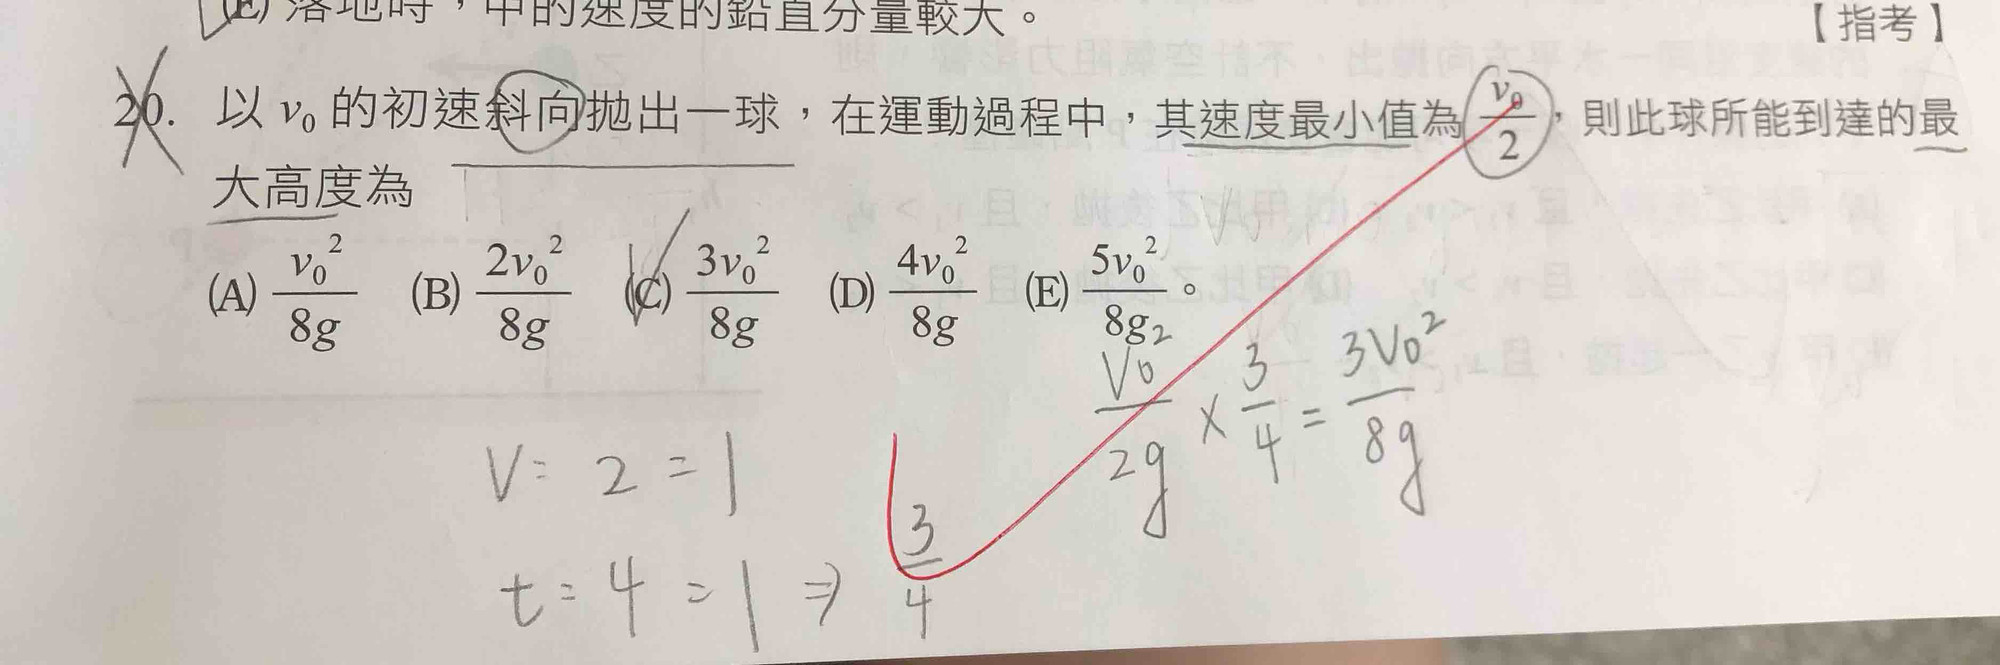 (E) 落地時，甲的速度的鉛直分量較大。 【指考】
20. 以 v₀ 的初速斜向拋出一球，在運動過程中，其速度最小值為 v₀/2，則此球所能到達的最
大高度為
(A) v₀²/8g (B) 2v₀²/8g (C) 3v₀²/8g (D) 4v₀²/8g (E) 5v₀²/8g。
V₀²/2g × 3/4 = 3V₀²/8g
V = 2 = 1
t = 4 = 1 ⇒ 3/4